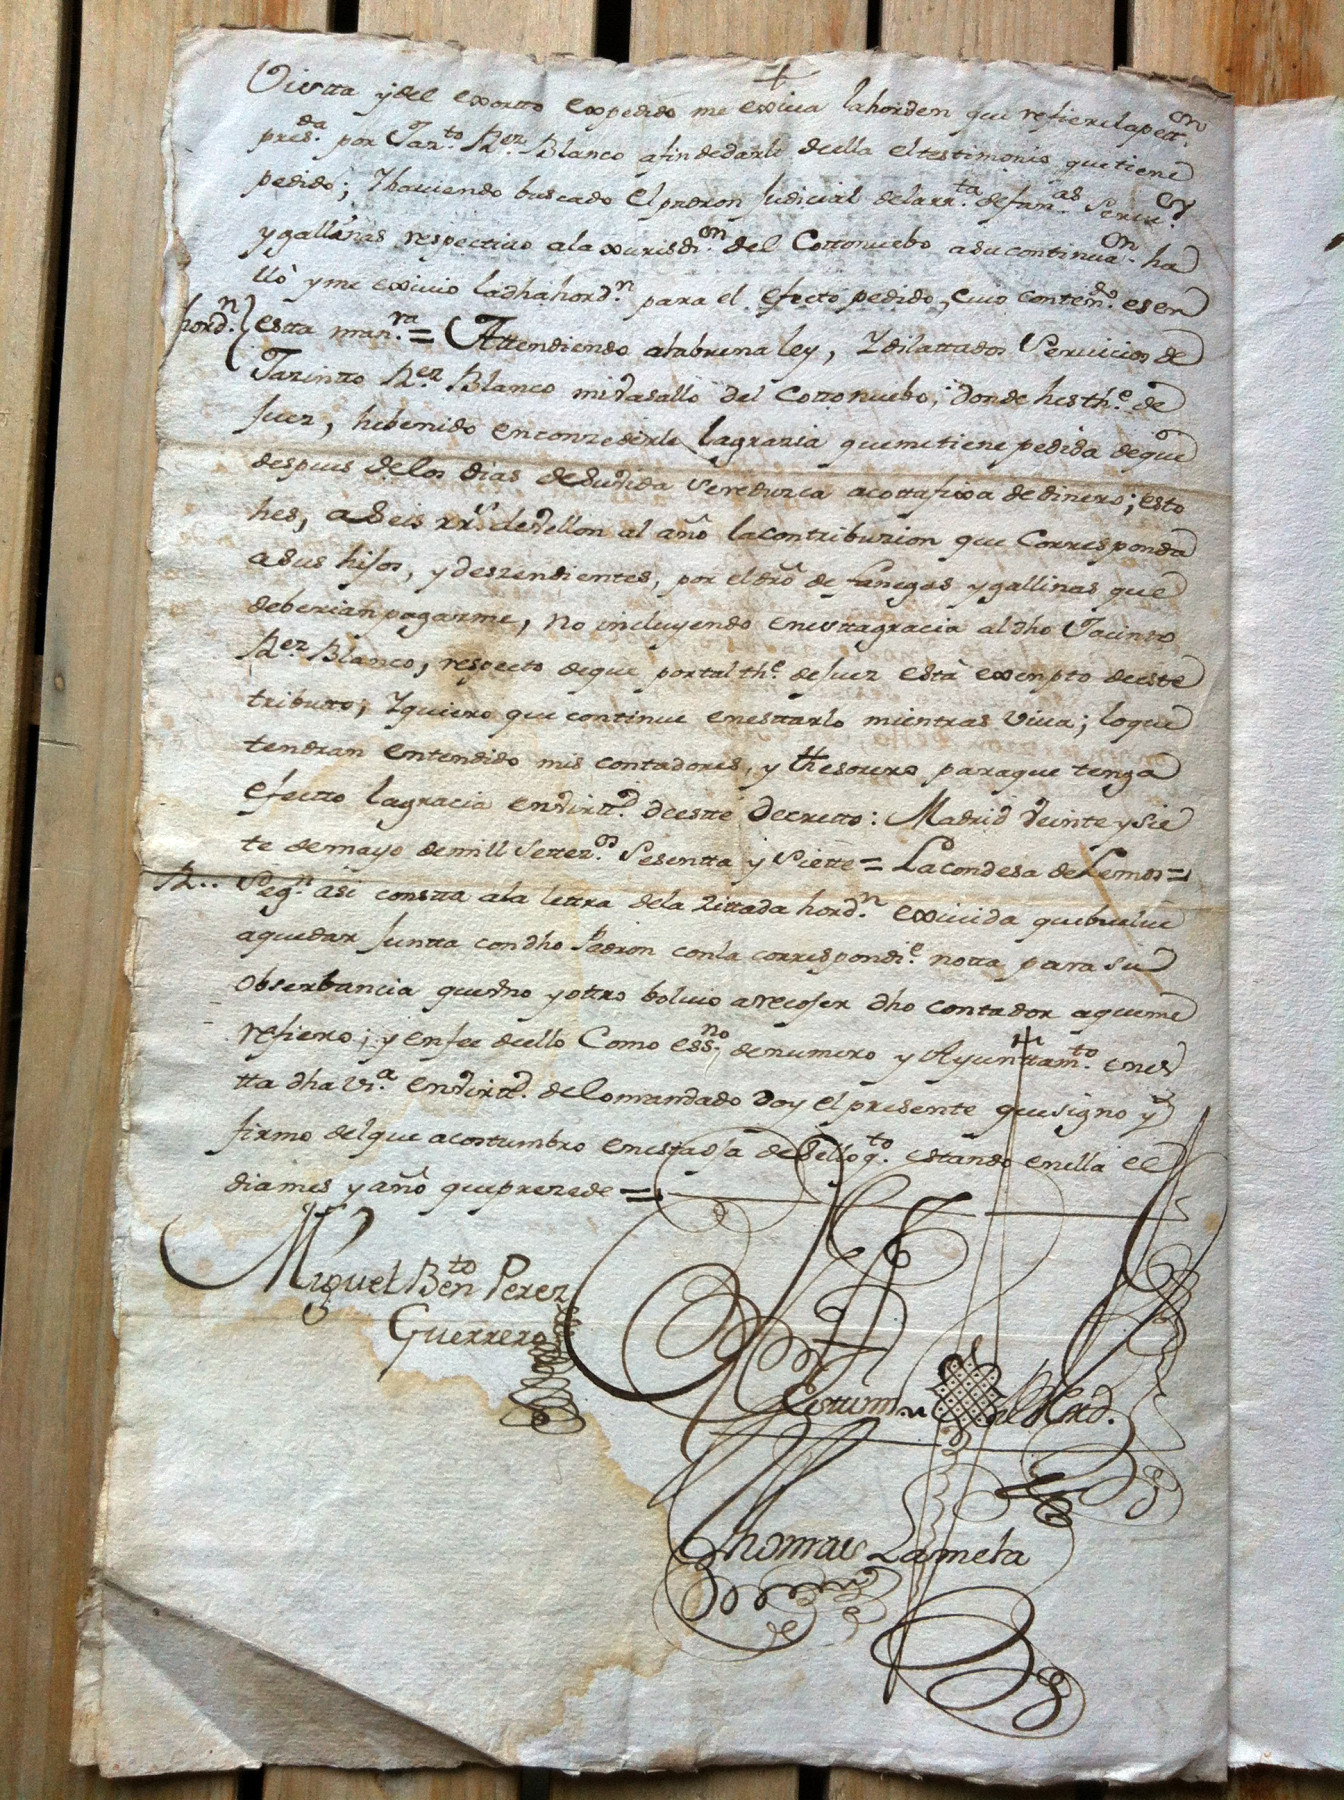 +
Vistta y del exortto expedido me exiva la horden que refiere la pett.on
pres.da por Jaz.to Rez. Blanco a fin de darle de ella el testimonio que tiene
pedido; Y haviendo buscado el padron Judicial de la rr.ta de fan.as
y gallinas respectivo a la xurisdi.on del Cottonuebo a su continua.on ha
lló y me exivio la dha hord.n para el efecto pedido, cuio conten.do es en
hord.n esta man.ra = Attendiendo a la buena ley, Y dilattados Servicios de
Jazintto Rez. Blanco mi vasallo del Cottonuebo, donde hes th.e de
Juez, he benido en conzederle la grazia que me tiene pedida de que
despues de los dias de su vida se reduzca a cotta fixa de dinero; esto
hes, a Seis rr.s de vellon al año la contribuzion que Corresponda
a sus hijos, y deszendientes, por el dro de fanegas y gallinas que
deberian pagarme, no incluyendo en esta gracia al dho Jacinto
Rez. Blanco, respecto de que por tal th.e de Juez está exenpto de este
tributto; Y quiero que continue en esttarlo mientras viva; lo que
tendran entendido mis contadores, y thesorero para que tenga
efectto la gracia en virtt.d de este decretto: Madrid veinte y sie
te de mayo de mill Settez.os Sesentta y Siette = La condesa de Lemos =
R.. Seg.n asi constta a la lettra de la Zittada hord.n exivida que buelve
a quedar Juntta con dho Padron con la correspondi.e notta para su
Observancia que uno y ottro bolvio a recojer dho contador a que me
refiero; y en fee de ello Como ess.no de numero y Ayunttam.to en es
tta dha v.a en virtt.d de lo mandado doy el presente que signo y
firmo del que acostumbro en esta oja de Sello q.to estando en ella el
dia mes y año que prezede =
Miguel Ben.to Perez
Guerrero
Thomas Lamela